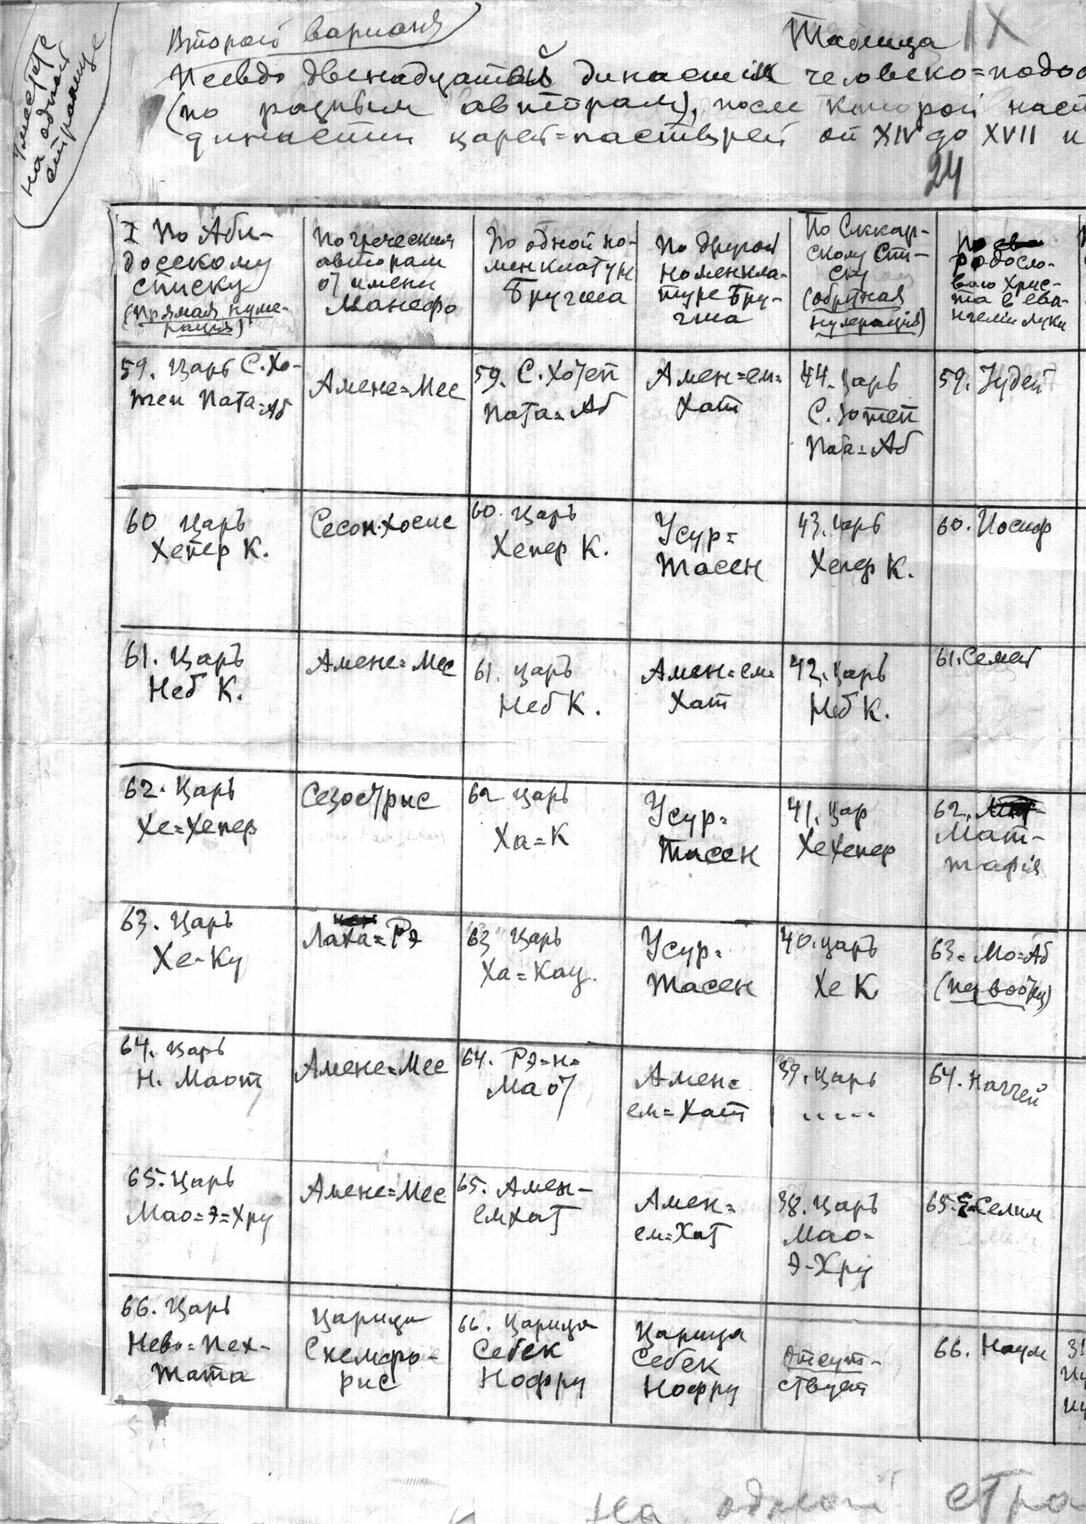 Уместить
на одной
странице
Второй вариант
Таблица IX
Псевдо двенадцатой династия человеко=подоб
(по разным авторам), после которой наст
династии царей=пастырей от XIV до XVII и
24
I По Аби-
досскому
списку
(прямая нуме-
рация)
По греческим
авторам
от имени
Манефо
По одной но-
менклатур
Бругша
По другой
номенкла-
туре Бру-
гша
По Саккар-
скому Спи-
ску
(обратная
нумерация)
По
родосло-
вию Хрис-
та в ева-
нгелии Луки
59. Царь С. Хо-
теп Пата=Аб
Амене=Мес
59. С. Хотеп
Пата=Аб
Амен=ем=
Хат
44. Царь
С. Хотеп
Пата=Аб
59. Иудей
60 Царь
Хепер К.
Сесон-Хосис
60. Царь
Хепер К.
Усур=
Тасен
43. Царь
Хепер К.
60. Иосиф
61. Царъ
Неб К.
Амене=Мес
61. Царъ
Неб К.
Амен=ем=
Хат
42. Царъ
Неб К.
61. Семей
62. Царъ
Хе=Хепер
Сезострис
62 Царь
Ха=К
Усур=
Тасен
41. Цар
Хехепер
62.
Мат-
тафiя
63. Царъ
Хе-Ку
Лаха=Рэ
63 Царь
Ха=Кау
Усур=
Тасен
40. Царъ
Хе К
63. Мо=Аб
64. Царь
Н. Маот
Амене=Мес
64. Рэ=н=
Маот
Амен=
ем=Хат
39. Царь
.....
64. Наггей
65. Царь
Мао=Э=Хру
Амене=Мес
65. Амен-
емхат
Амен=
ем=Хат
38. Царъ
Мао=
Э-Хру
65. Селим
66. Царь
Невр=Пех-
Тата
Царица
Скемоф-
рис
66. Царица
Себек
Нофру
Царица
Себек
Нофру
Отсут-
ствует
66. Наум
31
На одной стра